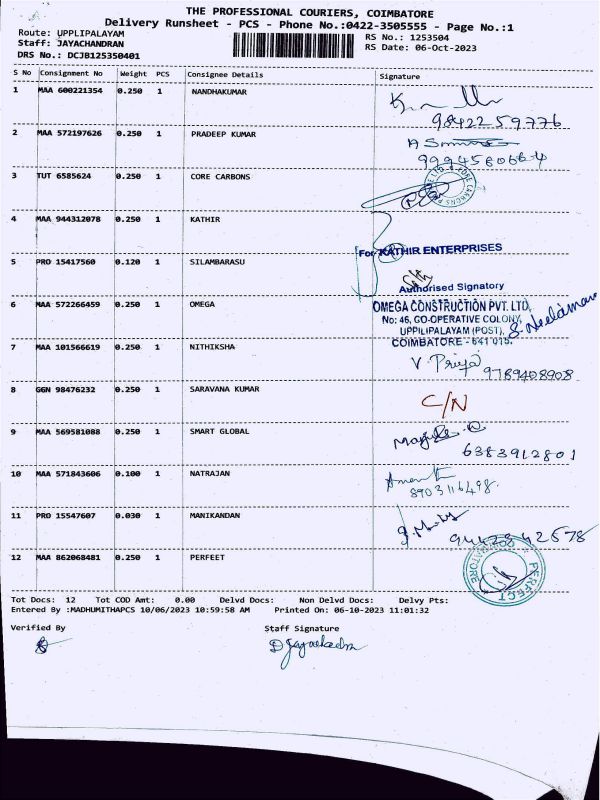 THE PROFESSIONAL COURIERS, COIMBATORE
Delivery Runsheet - PCS - Phone No.:0422-3505555 - Page No.:1
Route: UPPLIPALAYAM
RS No.: 1253504
Staff: JAYACHANDRAN
RS Date: 06-Oct-2023
DRS No.: DCJB125350401
S No Consignment No Weight PCS Consignee Details Signature
1 MAA 600221354 0.250 1 NANDHAKUMAR
9842259776
2 MAA 572197626 0.250 1 PRADEEP KUMAR
9994580664
3 TUT 6585624 0.250 1 CORE CARBONS
4 MAA 944312078 0.250 1 KATHIR
For KATHIR ENTERPRISES
5 PRO 15417560 0.120 1 SILAMBARASU
Authorised Signatory
6 MAA 572266459 0.250 1 OMEGA
OMEGA CONSTRUCTION PVT. LTD,
No: 46, CO-OPERATIVE COLONY,
UPPILIPALAYAM (POST),
COIMBATORE - 641 015.
7 MAA 101566619 0.250 1 NITHIKSHA
V. Priya 9789408908
8 GGN 98476232 0.250 1 SARAVANA KUMAR
C/N
9 MAA 569581088 0.250 1 SMART GLOBAL
6383912801
10 MAA 571843606 0.100 1 NATRAJAN
8903116498
11 PRO 15547607 0.030 1 MANIKANDAN
9442342578
12 MAA 862068481 0.250 1 PERFEET
PERFECT COIMBATORE
Tot Docs: 12 Tot COD Amt: 0.00 Delvd Docs: Non Delvd Docs: Delvy Pts:
Entered By :MADHUMITHAPCS 10/06/2023 10:59:58 AM Printed On: 06-10-2023 11:01:32
Verified By Staff Signature